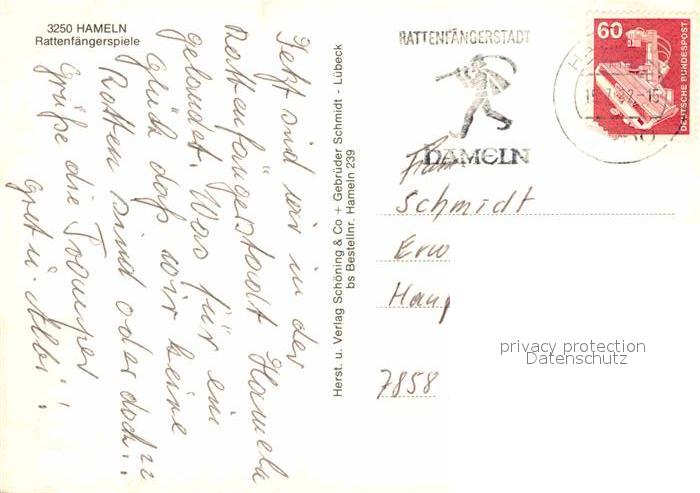 3250 HAMELN
Rattenfängerspiele
Jetzt sind wir in der
Rattenfängerstadt Hameln
gelandet. Was für ein
Glück daß wir keine
Ratten sind oder doch??
Grüße die Tramper
Gret u. Albi!
Herst. u. Verlag Schöning & Co + Gebrüder Schmidt - Lübeck
bs Bestellnr. Hameln 239
RATTENFÄNGERSTADT
HAMELN
60
DEUTSCHE BUNDESPOST
Schmidt
7858
privacy protection
Datenschutz